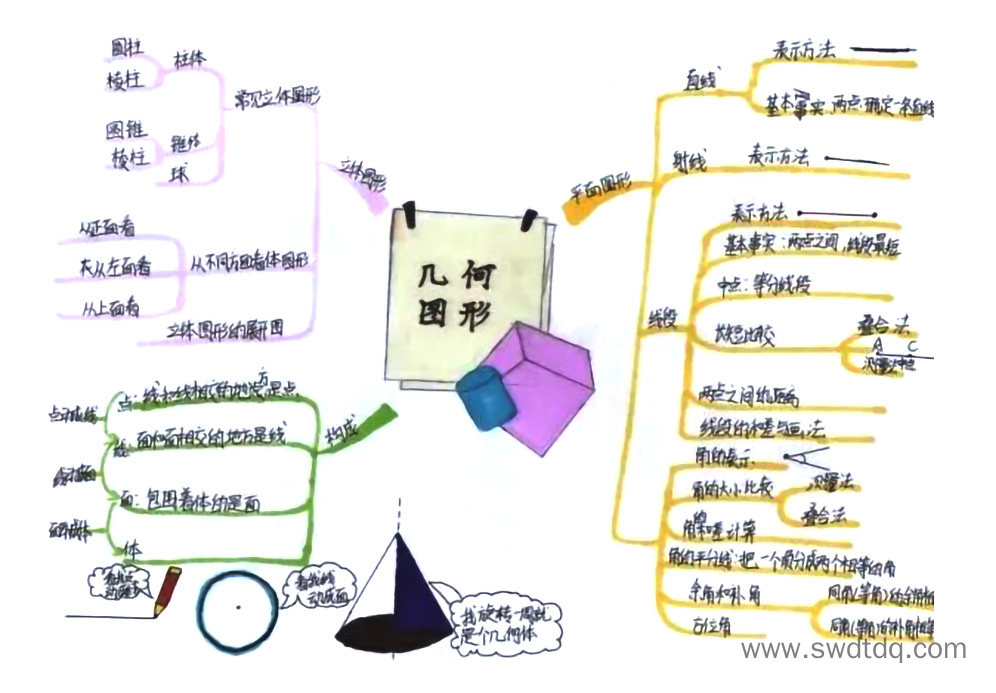 几何
图形
立体图形
常见立体图形
柱体
圆柱
棱柱
锥体
圆锥
棱柱
球
从不同方面看体图形
从正面看
从左面看
从上面看
立体图形的展开图
构成
点:线和线相交的地方是点
点动成线
线:面和面相交的地方是线
面:包围着体的是面
面动成体
体
看我点
动成线
看我线
动成面
我旋转一周就
是个几何体
平面图形
直线
表示方法
基本事实:两点确定一条直线
射线
表示方法
线段
表示方法
基本事实:两点之间,线段最短
中点:等分线段
长短比较
叠合法
A C
测量法
两点之间的距离
线段的和差与画法
角的表示
角的大小比较
测量法
叠合法
角的和差计算
角的平分线:把一个角分成两个相等的角
余角和补角
同角(等角)的余角相等
同角(等角)的补角相等
方位角
www.swdtdq.com